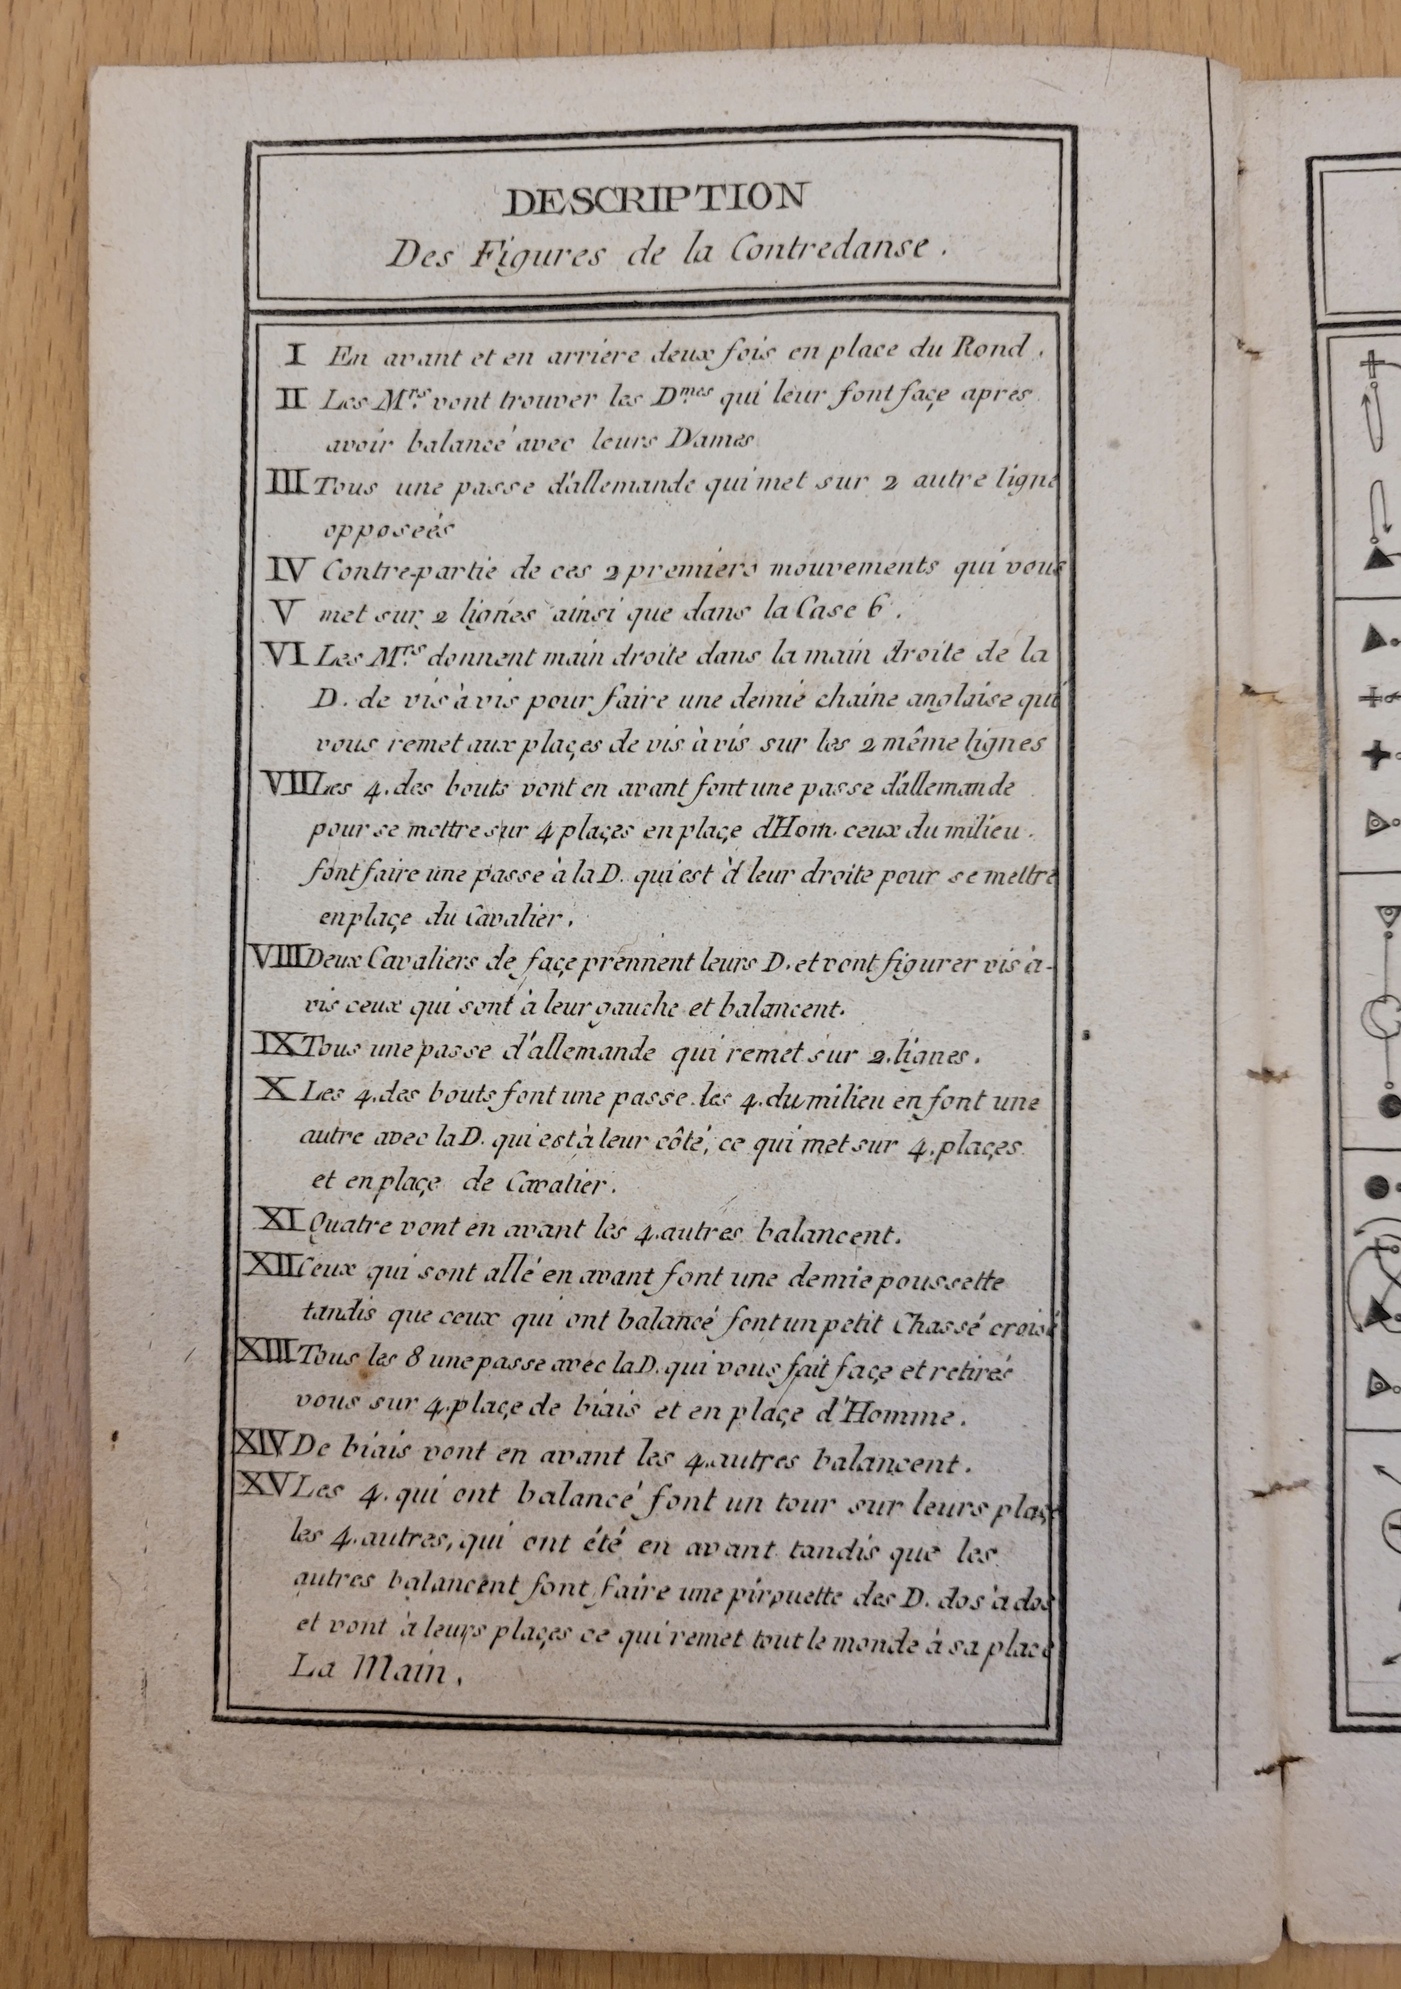 DESCRIPTION
Des Figures de la Contredanse.
I En avant et en arriere deux fois en place du Rond.
II Les Mrs. vont trouver les Dmes qui leur font façe apres
avoir balancé avec leurs Dames
III Tous une passe d'allemande qui met sur 2 autre ligne
opposeés
IV Contre-partie de ces 2 premiers mouvements qui vous
V met sur 2 lignes ainsi que dans la Case 6.
VI Les Mrs. donnent main droite dans la main droite de la
D. de vis à vis pour faire une demie chaine anglaise qui
vous remet aux plaçes de vis à vis sur les 2 même lignes
VII Les 4. des bouts vont en avant font une passe d'allemande
pour se mettre sur 4 plaçes en plaçe d'Hom. ceux du milieu.
font faire une passe à la D. qui est à leur droite pour se mettre
en plaçe du Cavalier.
VIII Deux Cavaliers de façe prennent leurs D. et vont figurer vis à-
vis ceux qui sont à leur gauche et balancent.
IX Tous une passe d'allemande qui remet sur 2. lignes.
X Les 4. des bouts font une passe les 4. du milieu en font une
autre avec la D. qui est à leur côté, ce qui met sur 4. plaçes
et en plaçe de Cavalier.
XI Quatre vont en avant les 4. autres balancent.
XII Ceux qui sont allé en avant font une demie poussette
tandis que ceux qui ont balancé font un petit Chassé croisé
XIII Tous les 8 une passe avec la D. qui vous fait façe et retirés
vous sur 4. plaçe de biais et en plaçe d'Homme.
XIV De biais vont en avant les 4. autres balancent.
XV Les 4. qui ont balancé font un tour sur leurs
les 4. autres, qui ont été en avant tandis que les
autres balancent font faire une pirouette des D. dos à dos
et vont à leurs plaçes ce qui remet tout le monde à sa place
La Main.